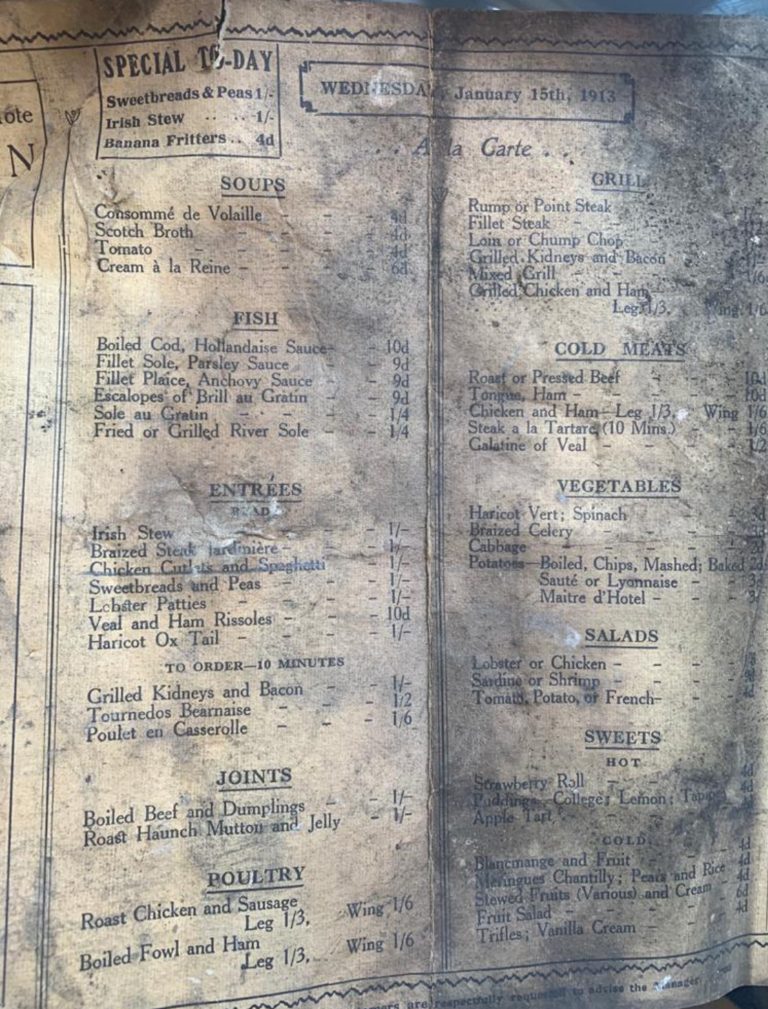 ote
N
SPECIAL TO-DAY
Sweetbreads & Peas 1/-
Irish Stew .. .. 1/-
Banana Fritters .. 4d
WEDNESDAY January 15th, 1913
. . A la Carte . .
SOUPS
Consommé de Volaille - - - 4d
Scotch Broth - - - 4d
Tomato - - - 4d
Cream à la Reine - - - - 6d
FISH
Boiled Cod, Hollandaise Sauce- - 10d
Fillet Sole, Parsley Sauce - - 9d
Fillet Plaice, Anchovy Sauce - - 9d
Escalopes of Brill au Gratin - - 9d
Sole au Gratin - - - - 1/4
Fried or Grilled River Sole - - 1/4
ENTRÉES
READ
Irish Stew - - - - 1/-
Braized Steak Jardinière - - - 1/-
Chicken Cutlets and Spaghetti - 1/-
Sweetbreads and Peas - - - 1/-
Lobster Patties - - - - 1/-
Veal and Ham Rissoles - - - 10d
Haricot Ox Tail - - - - 1/-
TO ORDER—10 MINUTES
Grilled Kidneys and Bacon - - 1/-
Tournedos Bearnaise - - - 1/2
Poulet en Casserolle - - - 1/6
JOINTS
Boiled Beef and Dumplings - - 1/-
Roast Haunch Mutton and Jelly - 1/-
POULTRY
Roast Chicken and Sausage
Leg 1/3, Wing 1/6
Boiled Fowl and Ham
Leg 1/3, Wing 1/6
GRILL
Rump or Point Steak
Fillet Steak - - -
Loin or Chump Chop
Grilled Kidneys and Bacon
Mixed Grill - - - 1/6
Grilled Chicken and Ham
Leg 1/3, Wing 1/6
COLD MEATS
Roast or Pressed Beef - - 10d
Tongue, Ham - - - - 10d
Chicken and Ham—Leg 1/3, Wing 1/6
Steak a la Tartare (10 Mins.) - - 1/6
Galatine of Veal - - - - 1/2
VEGETABLES
Haricot Vert; Spinach - -
Braized Celery - - -
Cabbage - - -
Potatoes—Boiled, Chips, Mashed; Baked 2d
Sauté or Lyonnaise - - 3d
Maitre d'Hotel - - -
SALADS
Lobster or Chicken - - - -
Sardine or Shrimp - - - -
Tomato, Potato, or French- - - 4d
SWEETS
HOT
Strawberry Roll - - - 4d
Puddings—College; Lemon; 4d
Apple Tart - - - 4d
COLD.
Blancmange and Fruit - - - 4d
Meringues Chantilly; Pears and Rice 4d
Stewed Fruits (Various) and Cream - 4d
Fruit Salad - - - - 6d
Trifles; Vanilla Cream - - - 4d
are respectfully requested to advise the Manager